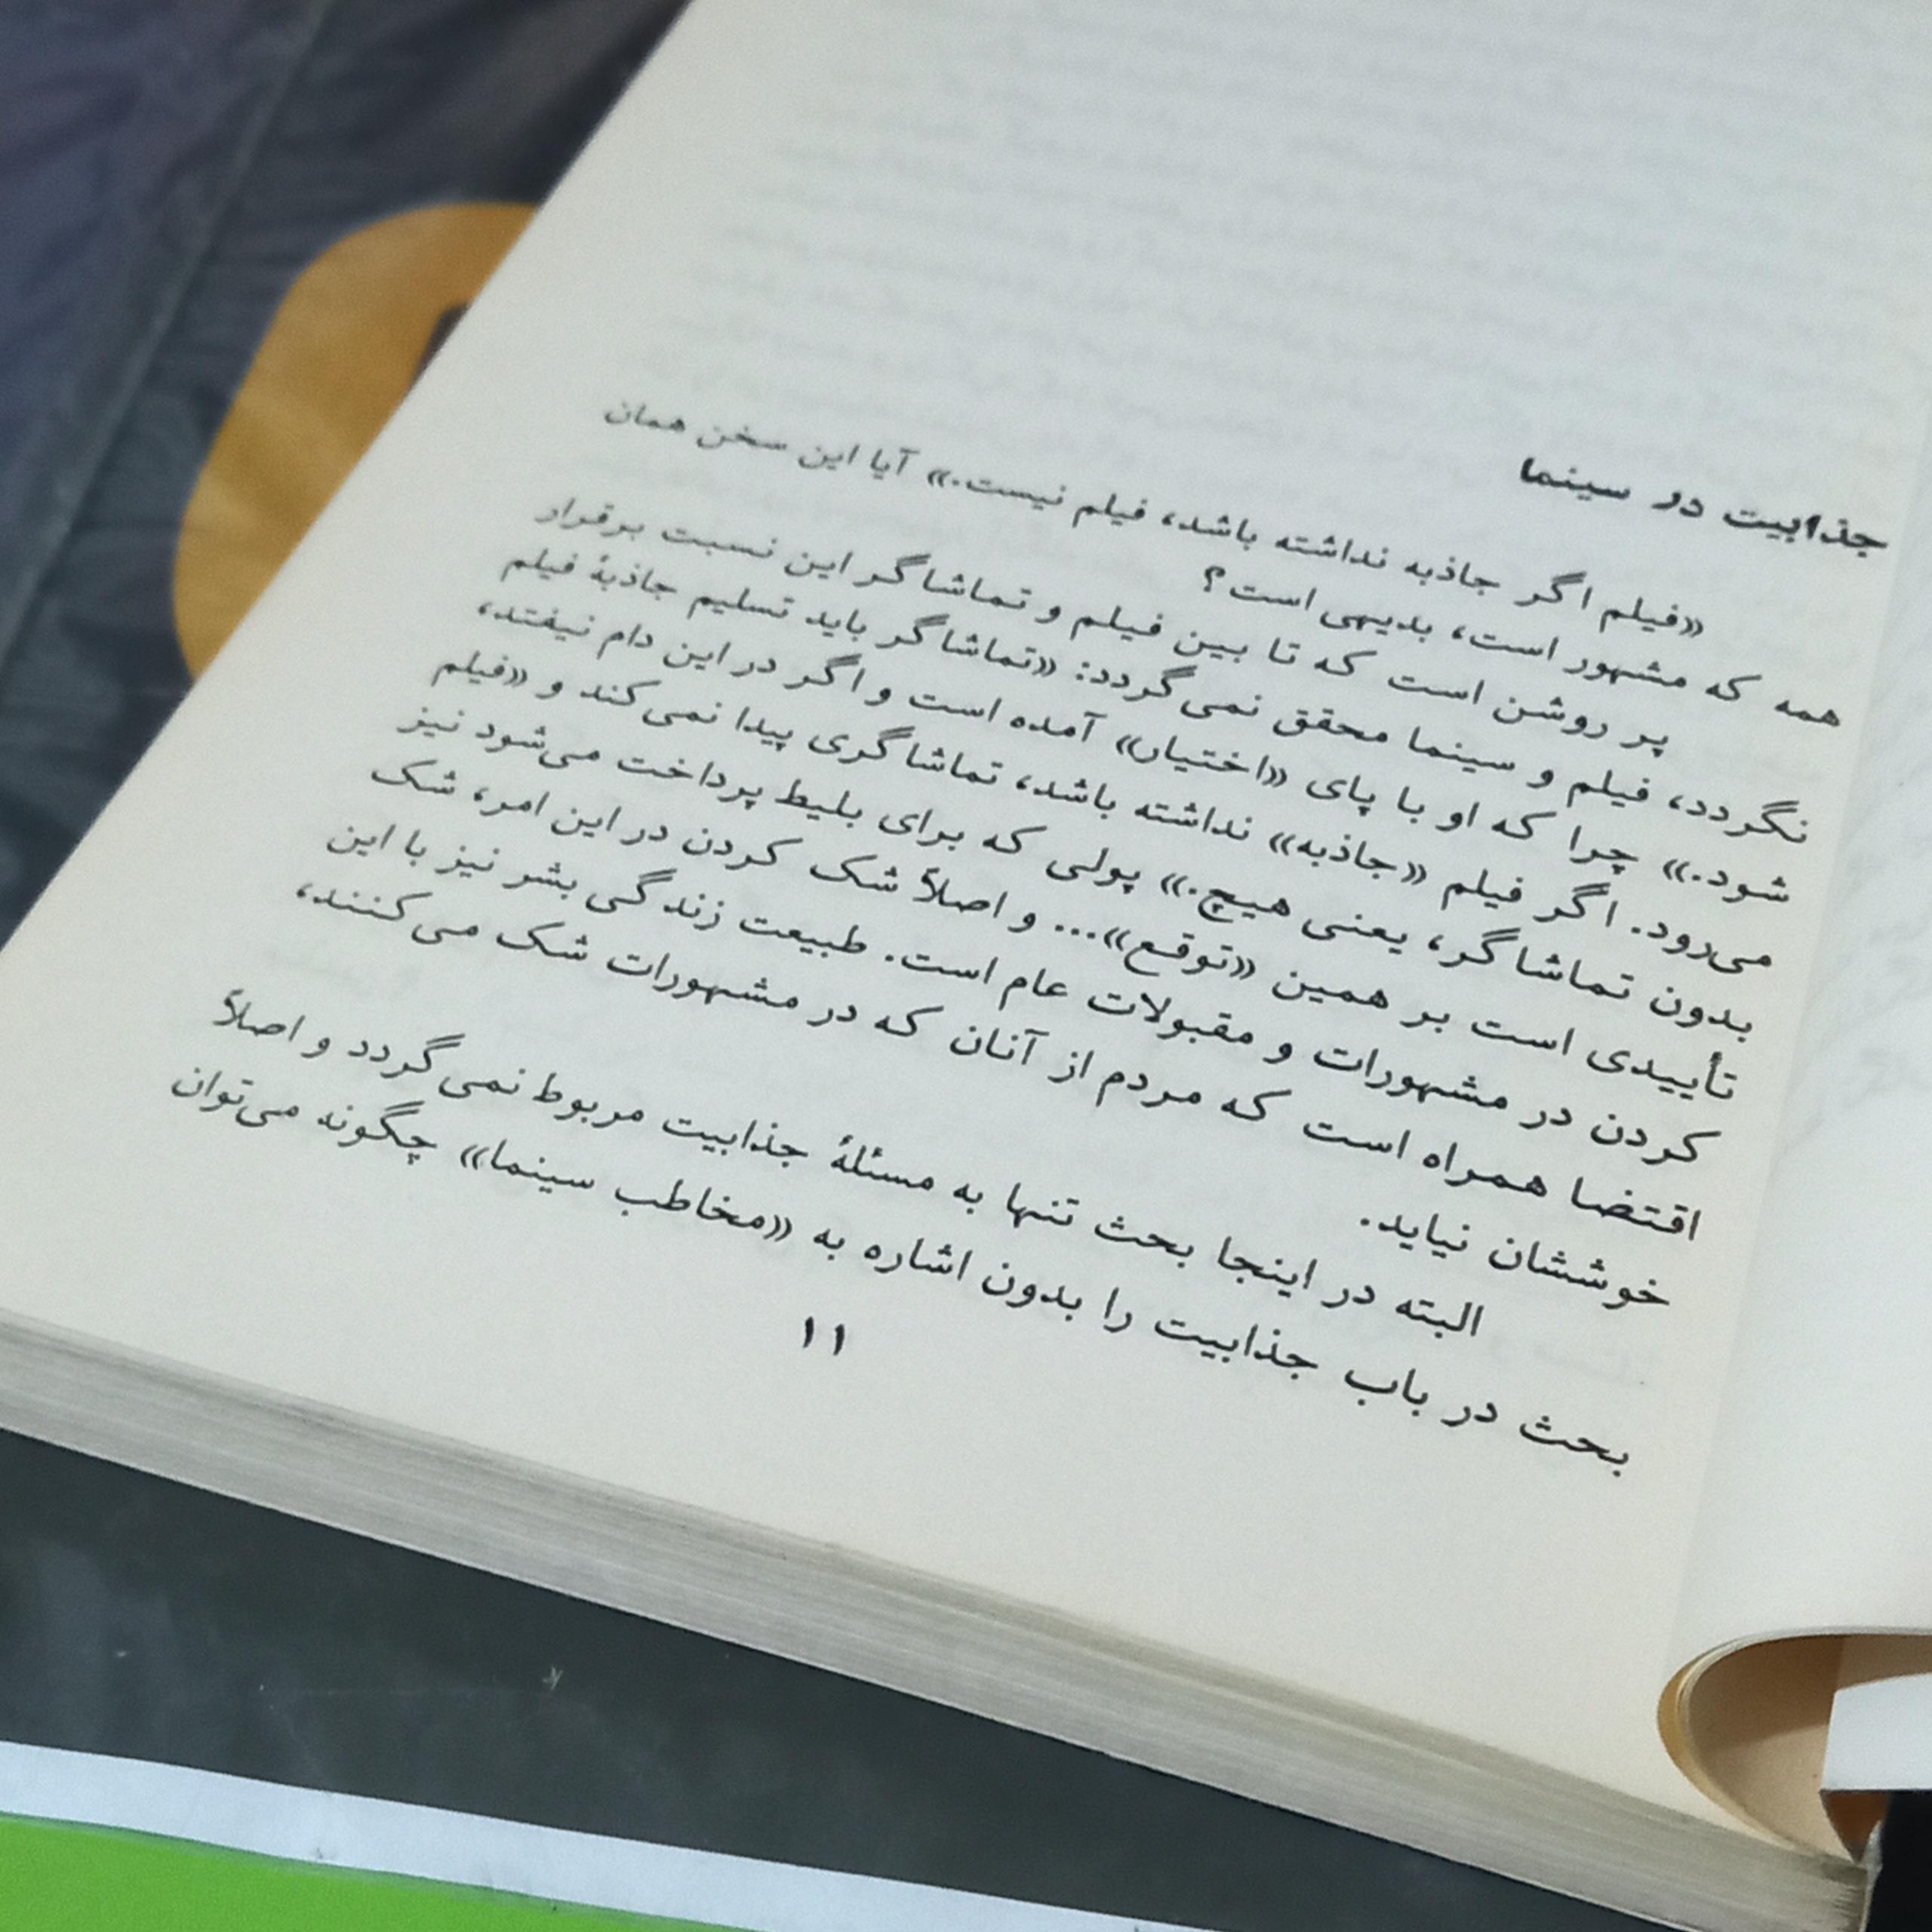 جذابیت در سینما
«فیلم اگر جاذبه نداشته باشد، فیلم نیست.» آیا این سخن همان
همه که مشهور است، بدیهی است؟
پر روشن است که تا بین فیلم و تماشاگر این نسبت برقرار
نگردد، فیلم و سینما محقق نمی‌گردد: «تماشاگر باید تسلیم جاذبهٔ فیلم
شود.» چرا که او با پای «اختیار» آمده است و اگر در این دام نیفتد،
می‌رود. اگر فیلم «جاذبه» نداشته باشد، تماشاگری پیدا نمی‌کند و «فیلم
بدون تماشاگر، یعنی هیچ.» پولی که برای بلیط پرداخت می‌شود نیز
تأییدی است بر همین «توقع»... و اصلاً شک کردن در این امر، شک
کردن در مشهورات و مقبولات عام است. طبیعت زندگی بشر نیز با این
اقتضا همراه است که مردم از آنان که در مشهورات شک می‌کنند،
خوششان نیاید.
البته در اینجا بحث تنها به مسئلهٔ جذابیت مربوط نمی‌گردد و اصلاً
بحث در باب جذابیت را بدون اشاره به «مخاطب سینما» چگونه می‌توان
۱۱